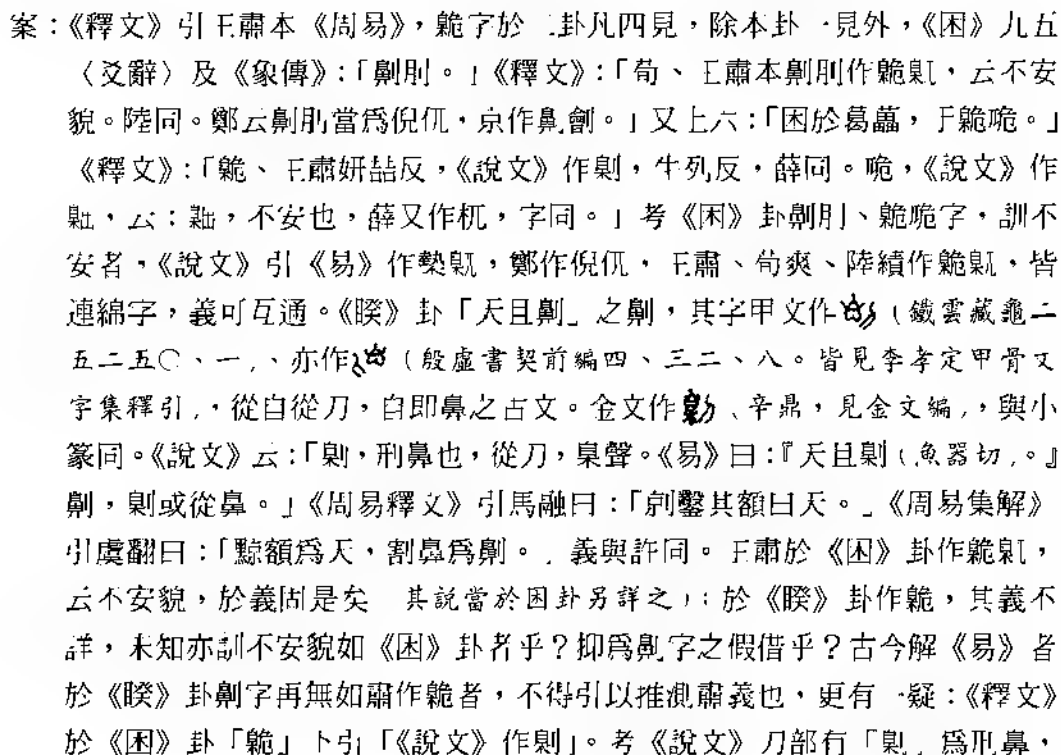 案：《釋文》引王肅本《周易》，臲字於二卦凡四見，除本卦一見外，《困》九五
〈爻辭〉及《象傳》：「劓刖。」《釋文》：「荀、王肅本劓刖作臲𠨜，云不安
貌。陸同。鄭云劓刖當爲倪㐳，京作劓劊。」又上六：「困於葛藟，于臲卼。」
《釋文》：「臲、王肅妍喆反，《說文》作劓，牛列反，薛同。卼，《說文》作
云：，不安也，薛又作杌，字同。」考《困》卦劓刖、臲卼字，訓不
安者，《說文》引《易》作，鄭作倪㐳，王肅、荀爽、陸績作臲，皆
連綿字，義可互通。《睽》卦「天且劓」之劓，其字甲文作（鐵雲藏龜二
五二五〇、一）、亦作（殷虛書契前編四、三二、八。皆見李孝定甲骨文
字集釋引），從自從刀，自即鼻之古文。金文作（辛鼎，見金文編），與小
篆同。《說文》云：「劓，刑鼻也，從刀，臬聲。《易》曰：『天且劓（魚器切）。』
劓，臬或從鼻。」《周易釋文》引馬融曰：「剠鑿其額曰天。」《周易集解》
引虞翻曰：「黥額爲天，割鼻爲劓。」義與許同。王肅於《困》卦作臲，
云不安貌，於義固是矣（其說當於困卦另詳之）；於《睽》卦作臲，其義不
詳，未知亦訓不安貌如《困》卦者乎？抑爲劓字之假借乎？古今解《易》者
於《睽》卦劓字再無如肅作臲者，不得引以推測肅義也，更有一疑：《釋文》
於《困》卦「臲」下引「《說文》作劓」。考《說文》刀部有「劓」爲刑鼻，